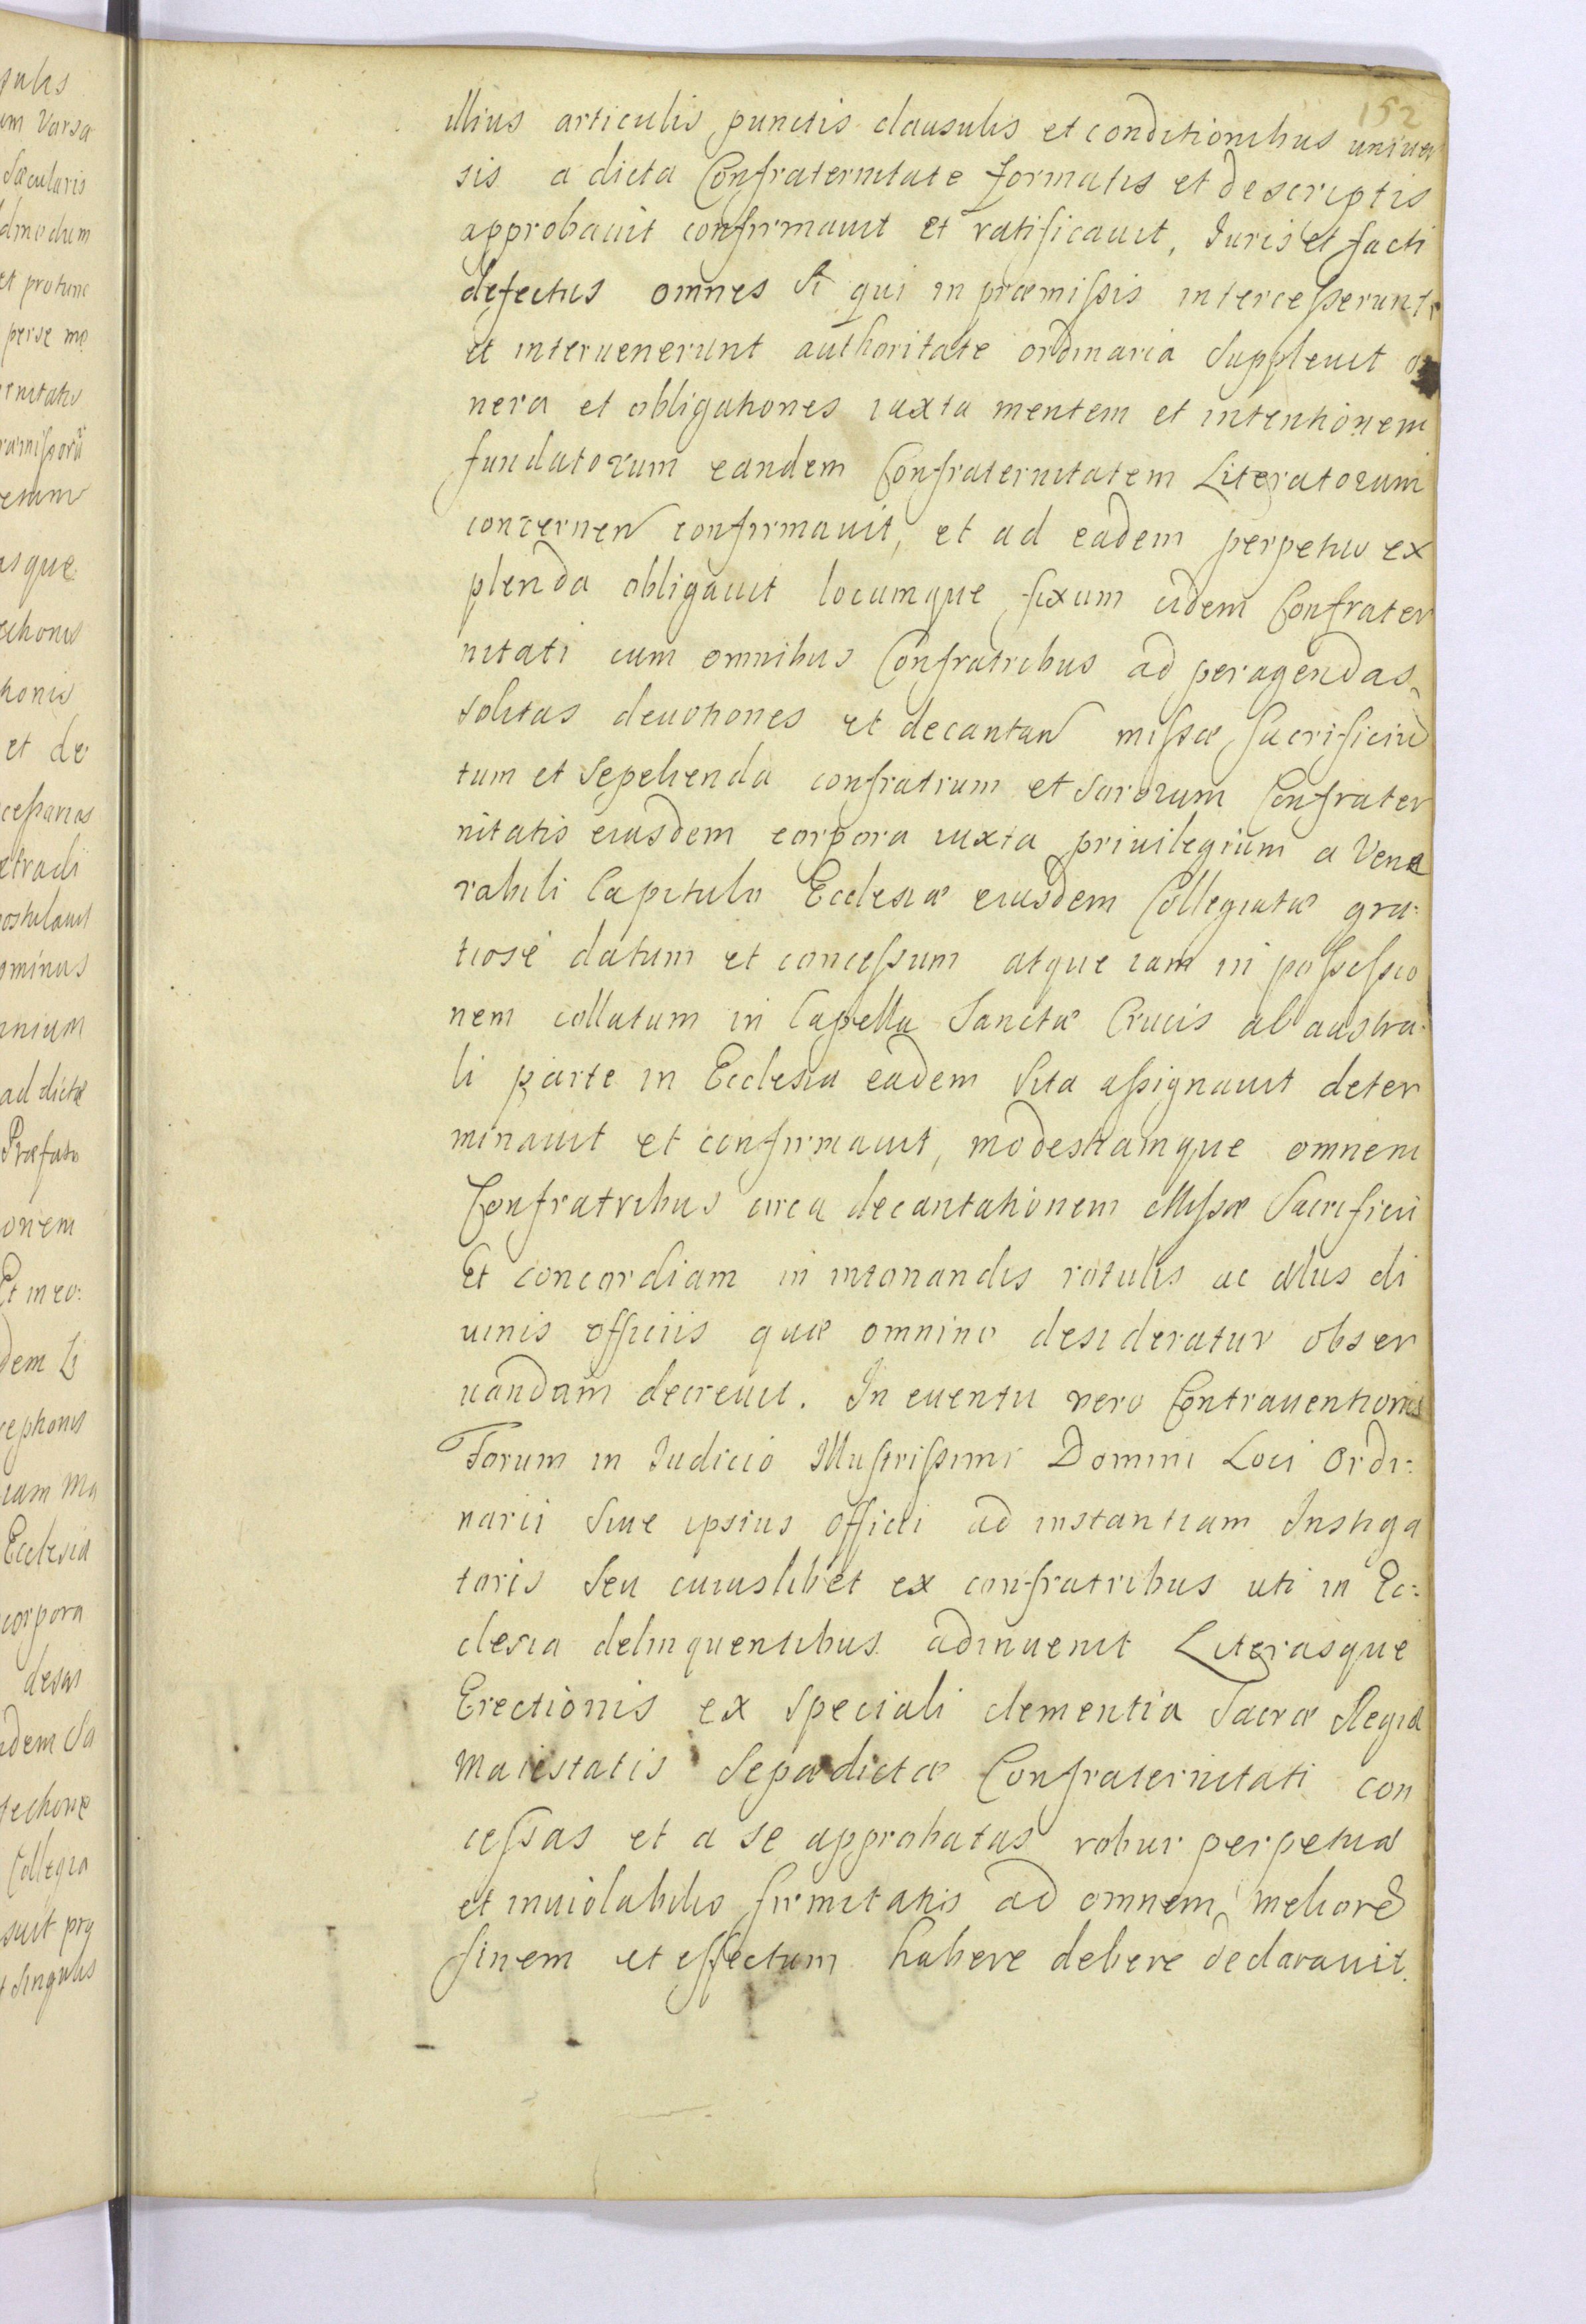 152
illius articulis, punctis clausulis et conditionibus univer
sis a dicta Confraternitate formatis et descriptis
approbauit confirmauit et ratificauit, Iuris et facti
defectus omnes si qui in præmissis intercesserunt
et interuenerunt authoritate ordinaria suppleuit o
nera et obligationes iuxta mentem et intentionem
fundatorum eandem Confraternitatem Literatorum
concernen confirmauit, et ad eadem perpetuo ex
plenda obligauit locumque fixum eidem Confrater
nitati cum omnibus Confratribus ad peragendas
solitas deuotiones et decantan missæ sacrificiu
tum et sepelienda confratrum et sororum Confrater
nitatis eiusdem corpora iuxta priuilegium a Vene
rabili Capitulo Ecclesiæ eiusdem Collegiatæ gra:
tiosè datum et concessum atque iam in possessio
nem collatum in Capella Sanctæ Crucis ab austra:
li parte in Ecclesia eadem sita assignauit deter
minauit et confirmauit, modestiamque omnem
Confratribus circa decantationem Missæ Sacrificii
Et concordiam in intonandis rotulis ac aliis di
uinis officiis quæ omnino desideratur obser
uandam decreuit. In euentu vero Contrauentionis
Forum in Iudicio Illustrissimi Domini Loci Ordi:
narii siue ipsius officii ad instantiam Instiga
toris seu cuiuslibet ex confratribus uti in Ec:
clesia delinquentibus adinuenit Literasque
Erectionis ex speciali clementia Sacræ Regiæ
Maiestatis sepædictæ Confraternitati con
cessas et a se approbatas robur perpetuæ
et inuiolabilis firmitatis ad omnem meliorẽ
finem et effectum habere debere declarauit.